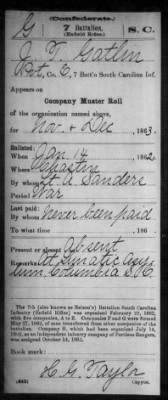 (Confederate.)
G 7 Battalion. S. C.
(Enfield Rifles.)
J. T. Gatlin
Pvt, Co. E, 7 Batt'n South Carolina Inf.
Appears on
Company Muster Roll
of the organization named above,
for Nov. & Dec, 1863.
Enlisted:
When Jan. 14, 1862.
Where
By whom Sanders
Period War
Last paid:
By whom Never been paid
To what time , 186 .
Present or absent Absent
Remarks: At Lunatic Asy-
lum, Columbia S.C.
The 7th (also known as Nelson's) Battalion South Carolina
Infantry (Enfield Rifles) was organized February 22, 1862,
with five companies, A to E. Companies F and G were formed
May 27, 1862, of men transferred from other companies of the
battalion. Company H, which had been organized July 14,
1862, as an independent company of Partisan Rangers, was
assigned October 14, 1862.
Book mark:
H. G. Taylor
(642) Copyist.